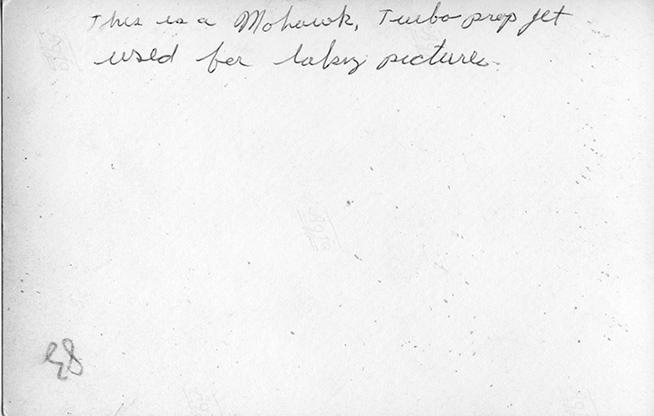 This is a Mohawk, Turbo prop jet
used for taking pictures.